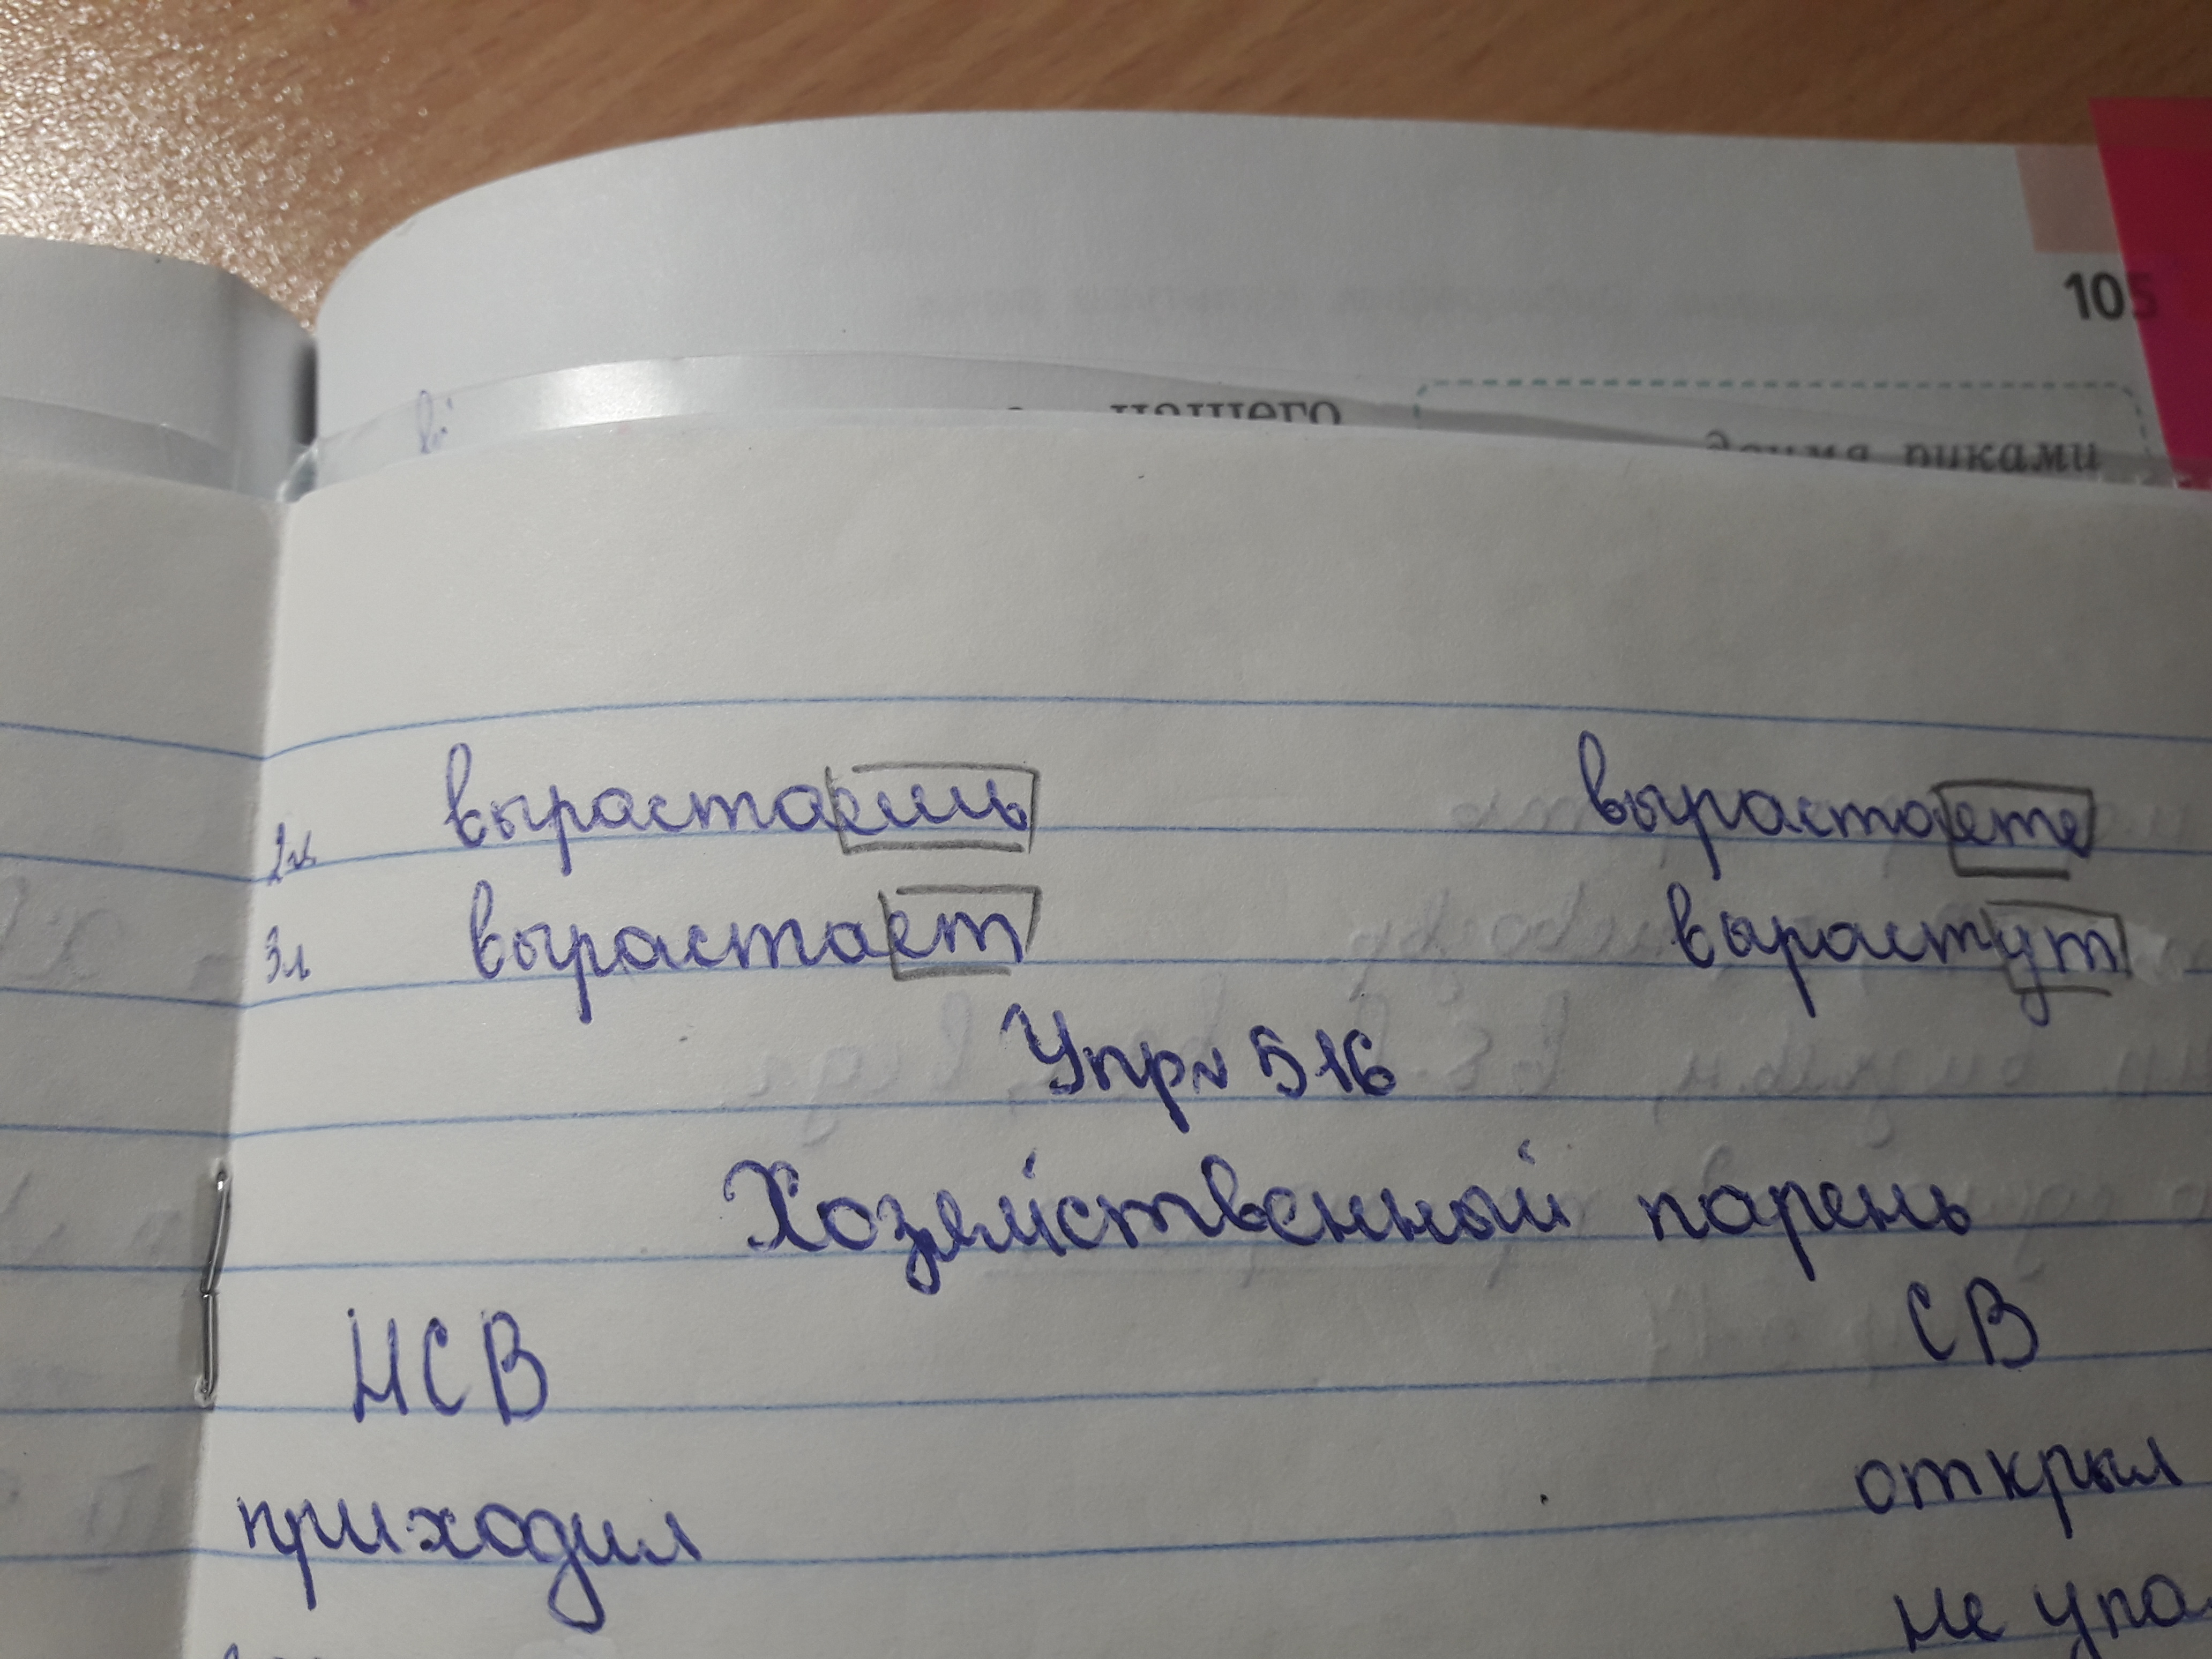 105
нашего
руками
2л вырастаешь вырастаете
3л вырастает вырастут
Упр№ 516
Хозяйственный парень
НСВ СВ
приходил открыл
не упа